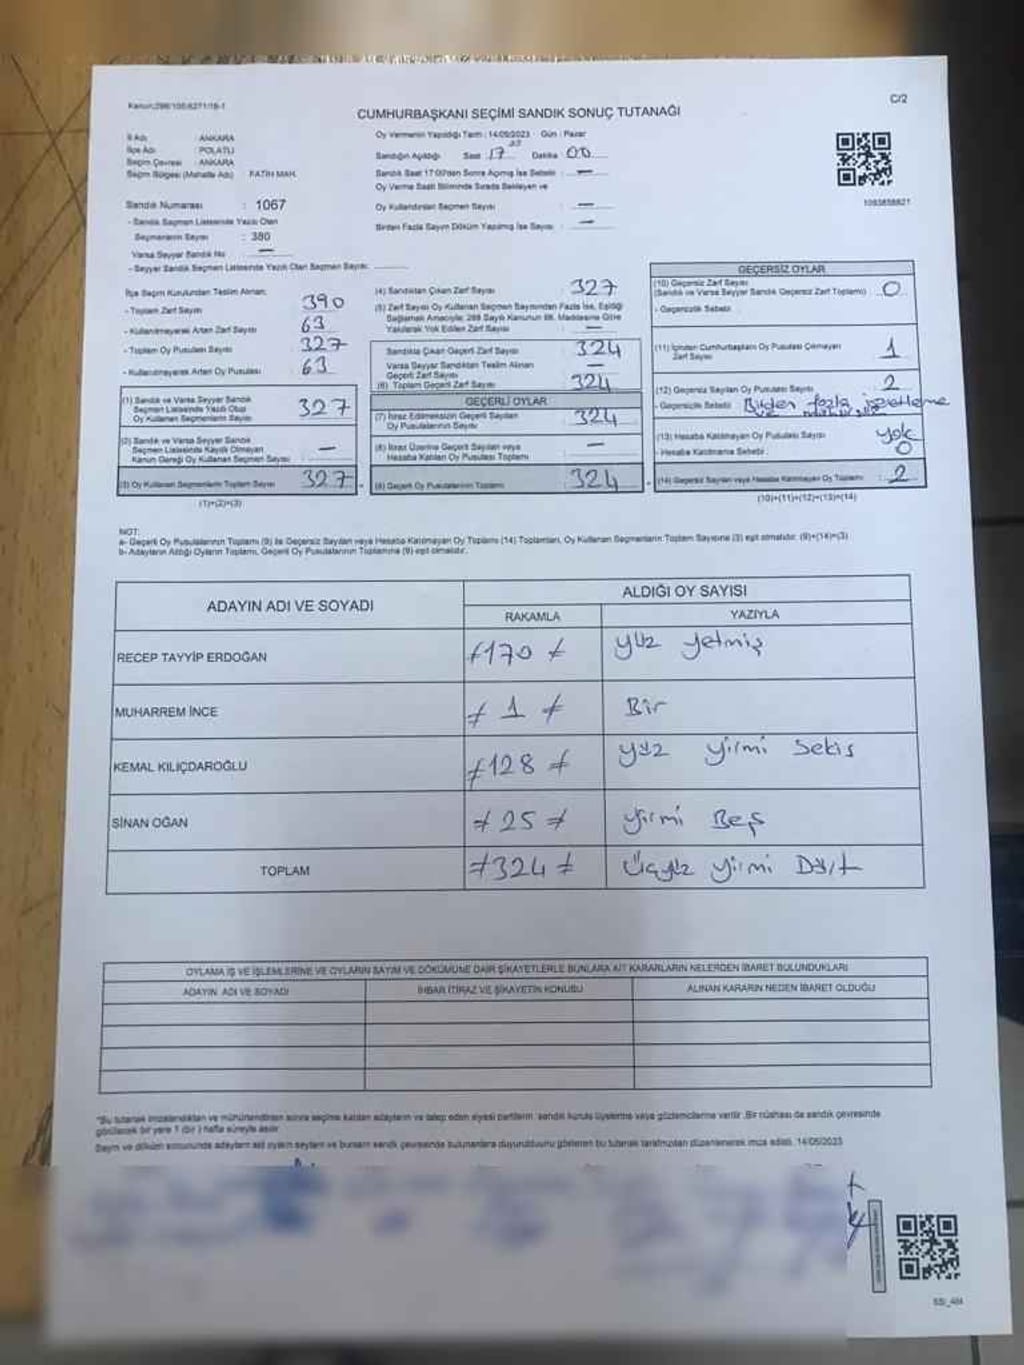 Kanun:298/105/6271/18-1
C/2
CUMHURBAŞKANI SEÇİMİ SANDIK SONUÇ TUTANAĞI
İl Adı : ANKARA
İlçe Adı : POLATLI
Seçim Çevresi : ANKARA
Seçim Bölgesi (Mahalle Adı) FATİH MAH.
Sandık Numarası : 1067
- Sandık Seçmen Listesinde Yazılı Olan
Seçmenlerin Sayısı : 380
Varsa Seyyar Sandık No —
- Seyyar Sandık Seçmen Listesinde Yazılı Olan Seçmen Sayısı:
Oy Vermenin Yapıldığı Tarih : 14/05/2023 Gün : Pazar
Sandığın Açıldığı Saat 17 Dakika 00
Sandık Saat 17:00'den Sonra Açılmış İse Sebebi : —
Oy Verme Saati Bitiminde Sırada Bekleyen ve
Oy Kullandırılan Seçmen Sayısı : —
Birden Fazla Sayım Döküm Yapılmış İse Sayısı : —
1093858821
İlçe Seçim Kurulundan Teslim Alınan;
- Toplam Zarf Sayısı 390
- Kullanılmayarak Artan Zarf Sayısı 63
- Toplam Oy Pusulası Sayısı 327
- Kullanılmayarak Artan Oy Pusulası 63
(1) Sandık ve Varsa Seyyar Sandık
Seçmen Listesinde Yazılı Olup
Oy Kullanan Seçmenlerin Sayısı 327
(2) Sandık ve Varsa Seyyar Sandık
Seçmen Listesinde Kayıtlı Olmayan
Kanun Gereği Oy Kullanan Seçmen Sayısı —
(3) Oy Kullanan Seçmenlerin Toplam Sayısı 327
(1)+(2)=(3)
(4) Sandıktan Çıkan Zarf Sayısı 327
(5) Zarf Sayısı Oy Kullanan Seçmen Sayısından Fazla İse, Eşitliği
Sağlamak Amacıyla; 298 Sayılı Kanunun 98. Maddesine Göre
Yakılarak Yok Edilen Zarf Sayısı —
Sandıkta Çıkan Geçerli Zarf Sayısı 324
Varsa Seyyar Sandıktan Teslim Alınan
Geçerli Zarf Sayısı —
(6) Toplam Geçerli Zarf Sayısı 324
GEÇERLİ OYLAR
(7) İtiraz Edilmeksizin Geçerli Sayılan
Oy Pusulalarının Sayısı 324
(8) İtiraz Üzerine Geçerli Sayılan veya
Hesaba Katılan Oy Pusulası Toplamı —
(9) Geçerli Oy Pusulalarının Toplamı 324
GEÇERSİZ OYLAR
(10) Geçersiz Zarf Sayısı
(Sandık ve Varsa Seyyar Sandık Geçersiz Zarf Toplamı) 0
- Geçersizlik Sebebi
(11) İçinden Cumhurbaşkanı Oy Pusulası Çıkmayan
Zarf Sayısı 1
(12) Geçersiz Sayılan Oy Pusulası Sayısı 2
- Geçersizlik Sebebi Birden fazla işaretleme
(13) Hesaba Katılmayan Oy Pusulası Sayısı yok
- Hesaba Katılmama Sebebi : 0
(14) Geçersiz Sayılan veya Hesaba Katılmayan Oy Toplamı 2
(10)+(11)+(12)+(13)=(14)
NOT:
a- Geçerli Oy Pusulalarının Toplamı (9) ile Geçersiz Sayılan veya Hesaba Katılmayan Oy Toplamı (14) Toplamları, Oy Kullanan Seçmenlerin Toplam Sayısına (3) eşit olmalıdır. (9)+(14)=(3)
b- Adayların Aldığı Oyların Toplamı, Geçerli Oy Pusulalarının Toplamına (9) eşit olmalıdır.
ADAYIN ADI VE SOYADI
ALDIĞI OY SAYISI
RAKAMLA YAZIYLA
RECEP TAYYİP ERDOĞAN ≠170≠ yüz yetmiş
MUHARREM İNCE ≠1≠ Bir
KEMAL KILIÇDAROĞLU ≠128≠ yüz yirmi sekis
SİNAN OĞAN ≠25≠ yirmi Beş
TOPLAM ≠324≠ Üçyüz yirmi Dört
OYLAMA İŞ VE İŞLEMLERİNE VE OYLARIN SAYIM VE DÖKÜMÜNE DAİR ŞİKAYETLERLE BUNLARA AİT KARARLARIN NELERDEN İBARET BULUNDUKLARI
ADAYIN ADI VE SOYADI İHBAR İTİRAZ VE ŞİKAYETİN KONUSU ALINAN KARARIN NEDEN İBARET OLDUĞU
"Bu tutanak imzalandıktan ve mühürlendikten sonra seçime katılan adayların ve talep eden siyasi partilerin sandık kurulu üyelerine veya gözlemcilerine verilir. Bir nüshası da sandık çevresinde
görülecek bir yere 1 (bir) hafta süreyle asılır.
Sayım ve döküm sonucunda adayların ait oyların sayıları ve bunların sandık çevresinde bulunanlara duyurulduğunu gösteren bu tutanak tarafımızdan düzenlenerek imza edildi. 14/05/2023